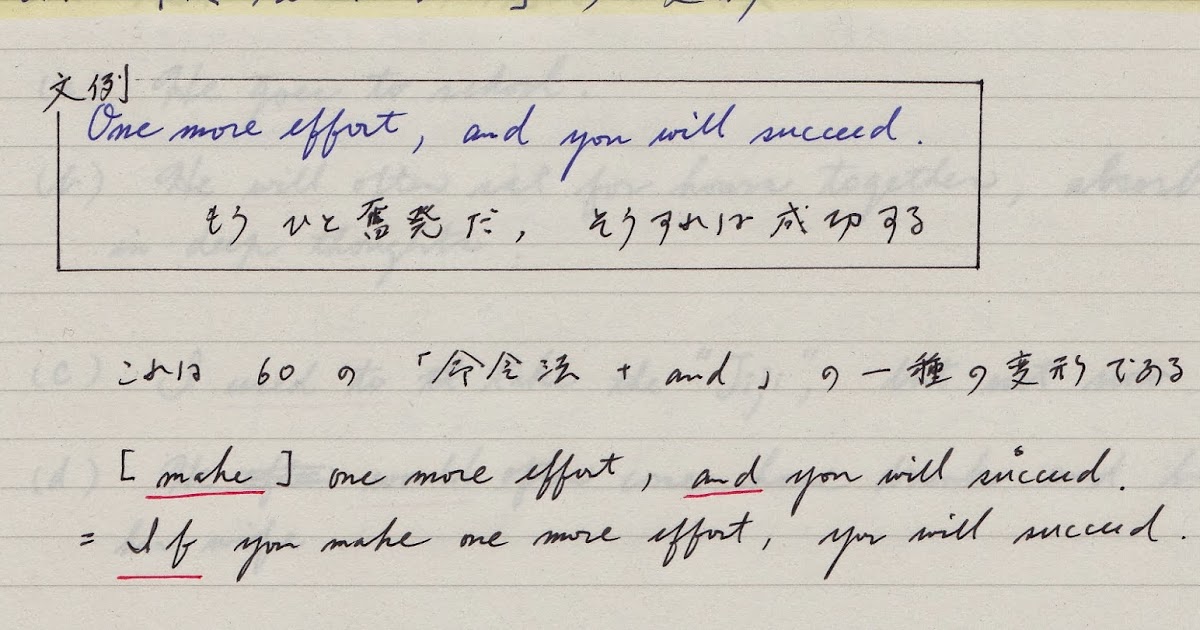 文例
One more effort, and you will succeed.
もう ひと奮発だ, そうすれば成功する
これは 60 の 「命令法 + and」 の 一種の変形である
[ make ] one more effort, and you will succeed.
= If you make one more effort, you will succeed.